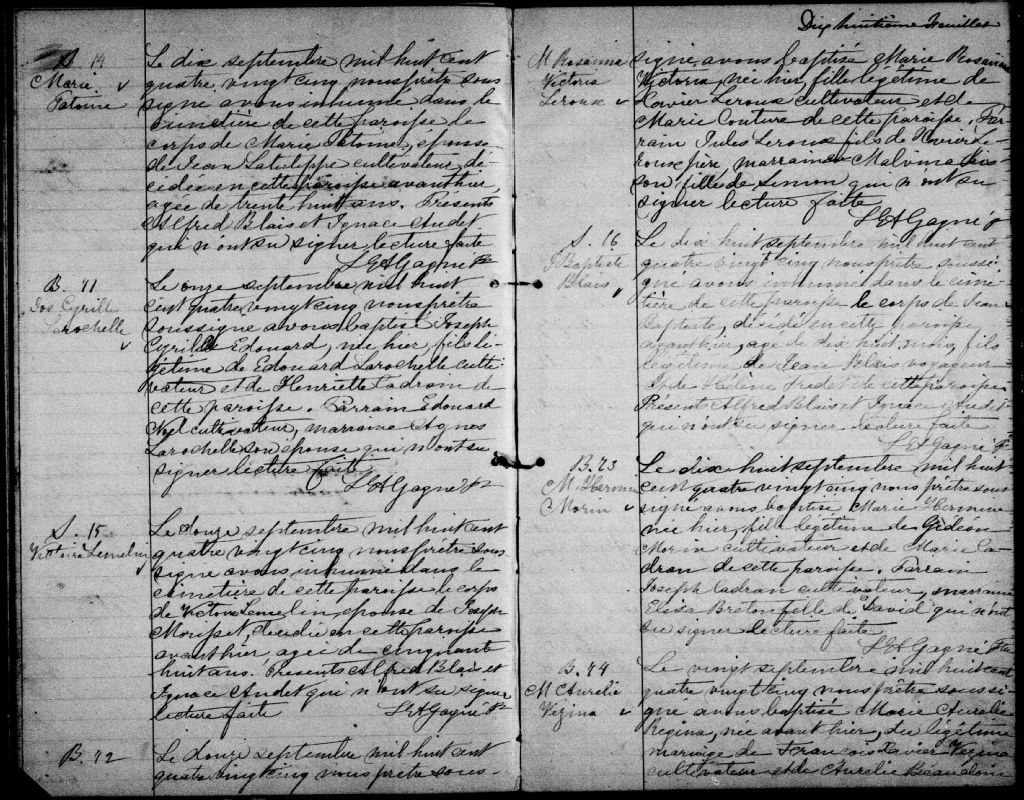 S 14
Marie
Patoine
Le dix septembre mil huit cent
quatre vingt cinq nous prêtre sous
signé avons inhumé dans le
cimetière de cette paroisse le
corps de Marie Patoine, épouse
de Jean Latulippe cultivateur, dé-
cédée en cette paroisse avant hier,
agée de trente huit ans. Présents
Alfred Blais et Ignace Audet
qui n'ont su signer lecture faite
LEAGagné Ptr
B. 41
Jos Cyrill
Larochelle
Le onze septembre mil huit
cent quatre vingt cinq nous prêtre
soussigné avons baptisé Joseph
Cyrille Edouard, né hier, fils lé-
gitime de Edouard Larochelle culti-
vateur et de Henriette Cadram de
cette paroisse. Parrain Edouard
Noel cultivateur, marraine Agnes
Larochelle son épouse qui n'ont su
signer lecture faite
LEAGagné Ptr
S. 15
Victoire Lemelin
Le douze septembre mil huit cent
quatre vingt cinq nous prêtre sous
signé avons inhumé dans le
cimetière de cette paroisse le corps
de Victoire Lemelin, épouse de Joseph
Morisset, décédée en cette paroisse
avant hier agée de cinquante
huit ans. Présents Alfred Blais et
Ignace Audet qui n'ont su signer
lecture faite LEAGagné Ptr
B. 42
Le douze septembre mil huit cent
quatre vingt cinq nous prêtre sous-
Dix huitième Feuillet
M Rosanna
Victoria
Leroux
signé avons baptisé Marie Rosanna
Victoria, née hier, fille légitime de
Xavier Leroux cultivateur et de
Marie Couture de cette paroisse. Par-
rain Jules Leroux fils de Xavier Le-
roux père, marraine Malvina
fille de Simon qui n'ont su
signer lecture faite
LEAGagné Ptr
S. 16
J Baptiste
Blais
Le dix huit septembre mil huit cent
quatre vingt cinq nous prêtre soussi-
gné avons inhumé dans le cime-
tière de cette paroisse le corps de Jean
Baptiste, décédé en cette paroisse
avant hier, agé de dix huit mois, fils
légitime de Jean Blais voyageur
et de Hélène Fredet de cette paroisse.
Présents Alfred Blais et Ignace Audet
qui n'ont su signer lecture faite
LEAGagné Ptr
B. 43
M Hermine
Morin
Le dix huit septembre mil huit
cent quatre vingt cinq nous prêtre sous
signé avons baptisé Marie Hermine
née hier, fille légitime de Gédéon
Morin cultivateur et de Marie Ca-
dran de cette paroisse. Parrain
Joseph Cadran cultivateur, marraine
Eliza Breton fille de David qui n'ont
su signer lecture faite
LEAGagné Ptr
B. 44
M Aurelie
Vezina
Le vingt septembre mil huit cent
quatre vingt cinq nous prêtre soussi-
gné avons baptisé Marie Aurelie
Régina, née avant hier, du légitime
mariage de Francois Xavier Vezina
cultivateur et de Aurelie Beaudoin